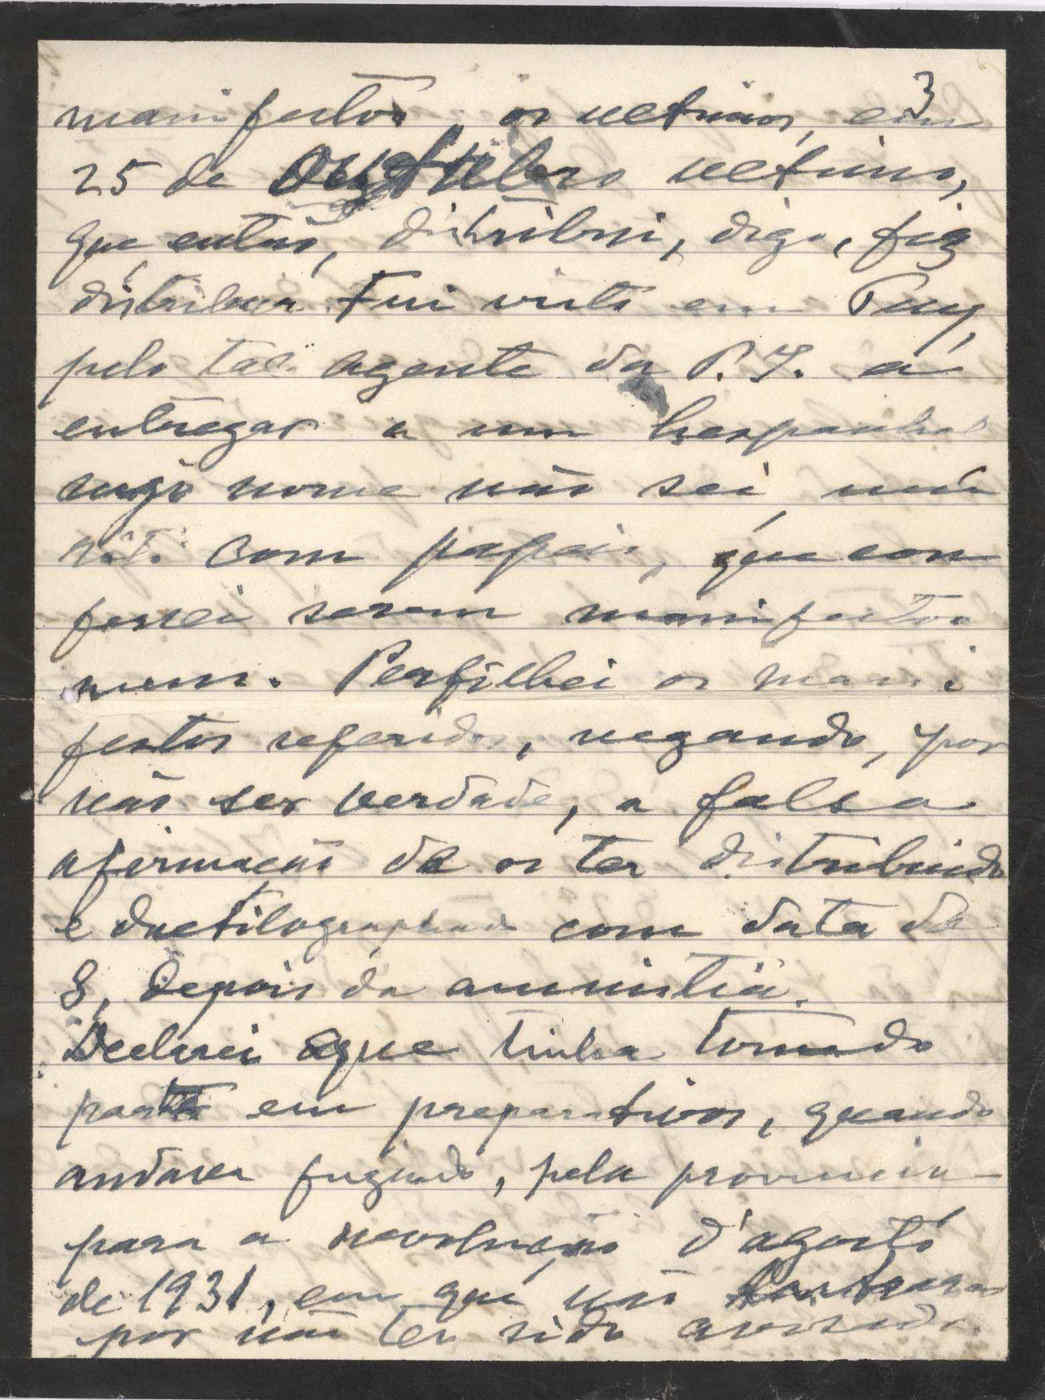 3
manifestos, os ultimos, em
25 de Outubro ultimo,
que então, distribui, digo, fiz
distribuir. Fui visto em Tuy,
pelo tal agente da P. I. a
entregar a um hespanhol
cujo nome não sei, um
com papeis, que con
fessei serem manifestos
meus. Perfilhei os mani
festos referidos, negando, por
não ser verdade, a falsa
afirmação de os ter distribuido
e dactilographado com data de
8, depois da amnistia.
Declarei que tinha tomado
parte em preparativos, quando
andava fugindo, pela provincia
para a revolução d'agosto
de 1931, em que não
por não ter sido avisado.